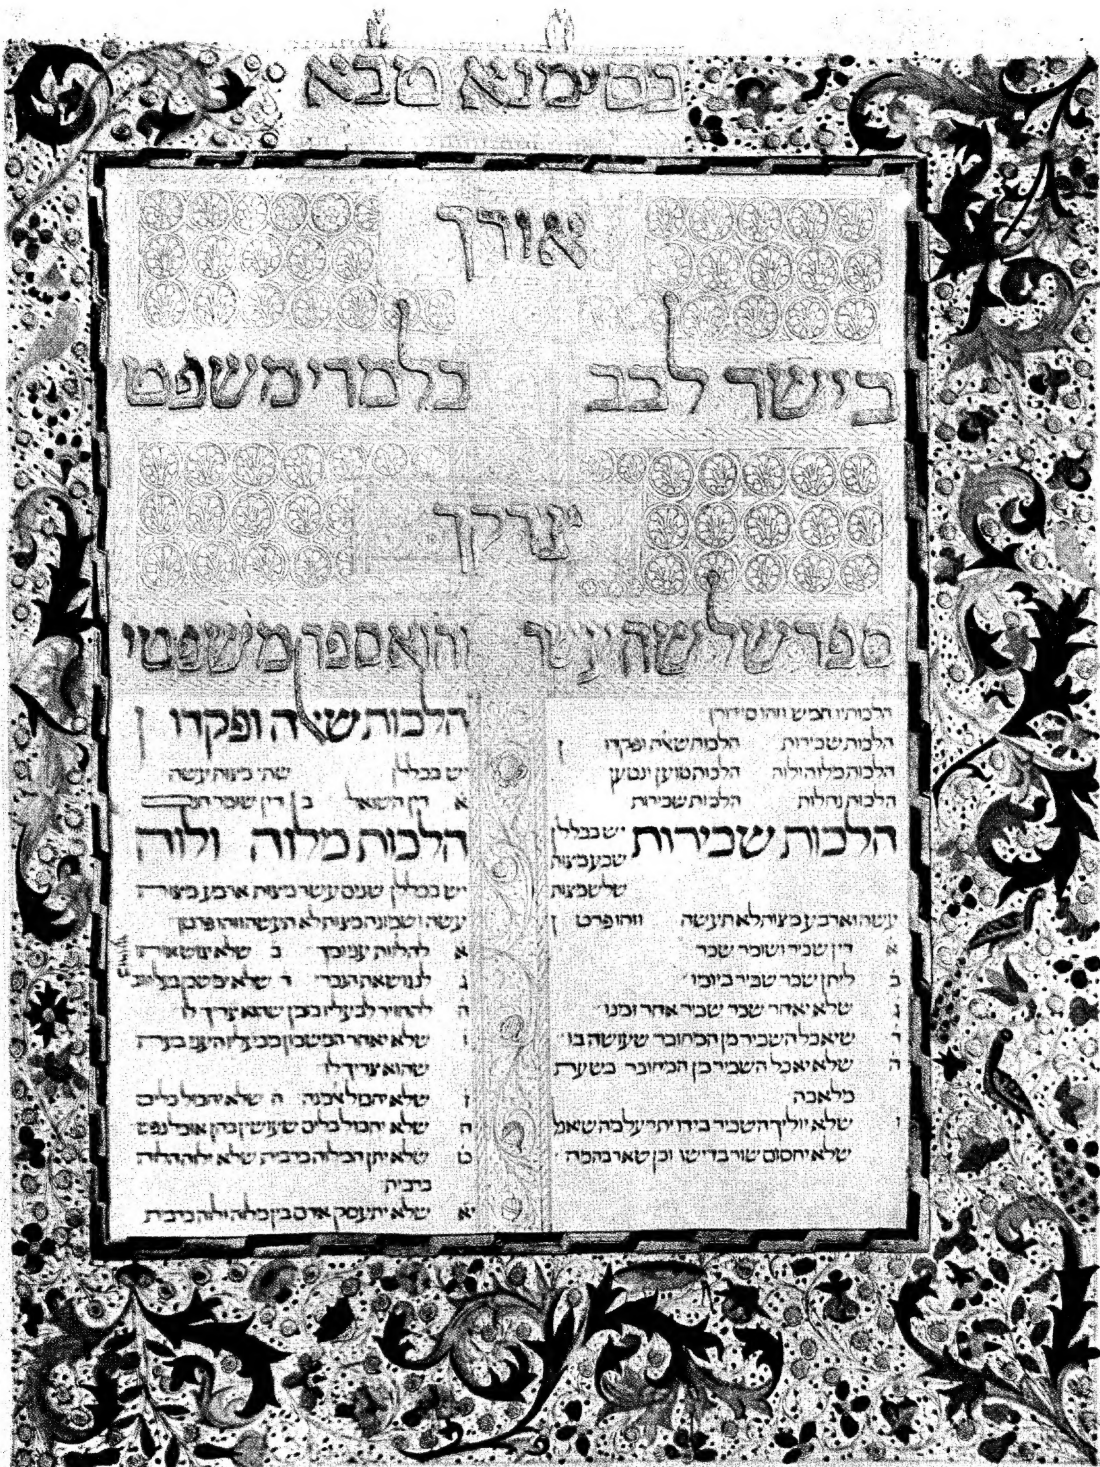 בסימנא טבא
אודך
ביישר לבב בלמדי משפטי
צדקך
ספר שלישה עשר והוא ספר משפטי
הלכותיו חמש וזהו סידורן
הלכות שכירות הלכות שאלה ופקדון
הלכות מלוה ולוה הלכות טוען ונטען
הלכות נחלות הלכות שכירות
הלכות שכירות יש בכללן
שבע מצות
שלש מצות
עשה וארבע מצות לא תעשה וזהו פרטן
א דין שכיר ושומר שכר
ב ליתן שכר שכיר ביומו
ג שלא יאחר שכר שכיר אחר זמנו
ד שיאכל השכיר מן המחובר שעושה בו
ה שלא יאכל השכיר מן המחובר בשעת
מלאכה
ו שלא יוליך השכיר בידו יתר על מה שאכל
שלא יחסום שור בדישו וכן שאר בהמה
הלכות שאלה ופקדון
יש בכללן שתי מצות עשה
א דין השואל ב דין שומר חנם
הלכות מלוה ולוה
יש בכללן שנים עשר מצות ארבע מצות
עשה ושמונה מצות לא תעשה וזהו פרטן
א להלות עני ומך ב שלא יגוש אותו
ג לנגוש את הנכרי ד שלא ימשכן בעל חוב
ה להחזיר לבעליו בזמן שהוא צריך לו
ו שלא יאחר המשכון מבעליו העני בעת
שהוא צריך לו
ז שלא יחבול אלמנה ח שלא יחבול כלים
ח שלא יחבול כלים שעושין בהן אוכל נפש
ט שלא יתן המלוה ברבית שלא ילוה הלוה
ברבית
יא שלא יתעסק אדם בין מלוה ולוה ברבית